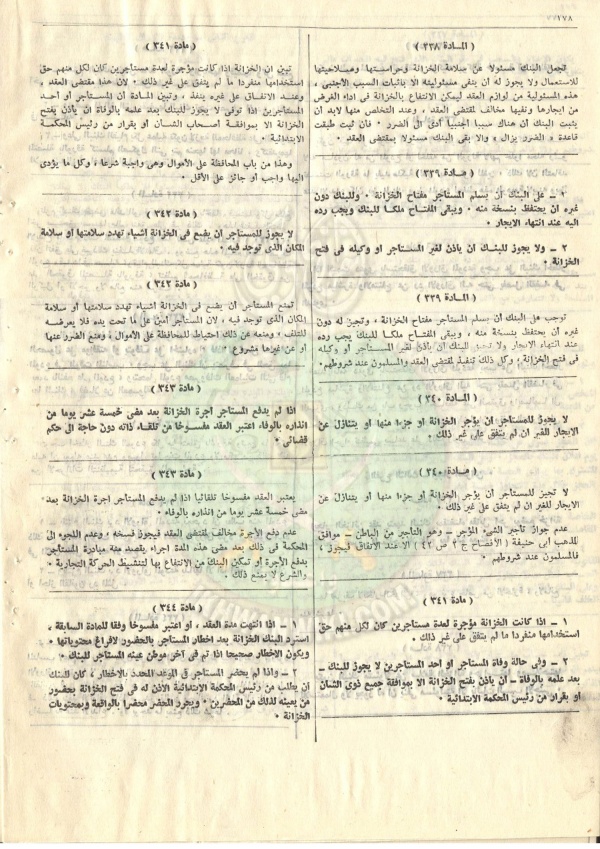 ١٧٨
( المادة ٣٣٨ )
تجعل البنك مسئولا عن سلامة الخزانة وحراستها وصلاحيتها
للاستعمال ولا يجوز له أن ينفى مسئوليته الا باثبات السبب الأجنبى ،
هذه المسئولية من لوازم العقد ليمكن الانتفاع بالخزانة فى أداء الغرض
من ايجارها ونفيها مخالف لمقتضى العقد ، وعند التخلص منها لابد أن
يثبت البنك أن هناك سببا أجنبيا أدى الى الضرر ٠ فان ثبت طبقت
قاعدة « الضرر يزال » والا بقى البنك مسئولا بمقتضى العقد ٠
( مادة ٣٣٩ )
١ – على البنك أن يسلم المستأجر مفتاح الخزانة ٠ وللبنك دون
غيره أن يحتفظ بنسخة منه ٠ ويبقى المفتاح ملكا للبنك ويجب رده
اليه عند انتهاء الايجار ٠
٢ – ولا يجوز للبنك أن يأذن لغير المستأجر أو وكيله فى فتح
الخزانة ٠
( المادة ٣٣٩ )
توجب على البنك أن يسلم المستأجر مفتاح الخزانة ، وتجيز له دون
غيره أن يحتفظ بنسخة منه ، ويبقى المفتاح ملكا للبنك يجب رده
عند انتهاء الايجار ولا تجيز للبنك أن يأذن لغير المستأجر أو وكيله
فى فتح الخزانة، وكل ذلك تنفيذ لمقتضى العقد والمسلمون عند شروطهم٠
( المادة ٣٤٠ )
لا يجوز للمستأجر أن يؤجر الخزانة أو جزءا منها أو يتنازل عن
الايجار للغير ان لم يتفق على غير ذلك ٠
( مادة ٣٤٠ )
لا تجيز للمستأجر أن يؤجر الخزانة أو جزءا منها أو يتنازل عن
الايجار للغير ان لم يتفق على غير ذلك ٠
عدم جواز تأجير الشىء المؤجر – وهو التأجير من الباطن – موافق
لمذهب أبى حنيفة ( الافصاح ج ٢ ص ٤٢ ) الا عند الاتفاق فيجوز ،
فالمسلمون عند شروطهم ٠
( مادة ٣٤١ )
١ – اذا كانت الخزانة مؤجرة لعدة مستأجرين كان لكل منهم حق
استخدامها منفردا ما لم يتفق على غير ذلك ٠
٢ – وفى حالة وفاة المستأجر أو أحد المستأجرين لا يجوز للبنك –
بعد علمه بالوفاة – أن يأذن بفتح الخزانة الا بموافقة جميع ذوى الشأن
أو بقرار من رئيس المحكمة الابتدائية ٠
( مادة ٣٤١ )
تبين أن الخزانة اذا كانت مؤجرة لعدة مستأجرين كان لكل منهم حق
استخدامها منفردا ما لم يتفق على غير ذلك ٠ لأن هذا مقتضى العقد ،
وعند الاتفاق على غيره ينفذ ، وتبين المادة أن المستأجر أو أحد
المستأجرين اذا توفى لا يجوز للبنك بعد علمه بالوفاة أن يأذن بفتح
الخزانة الا بموافقة أصحاب الشأن أو بقرار من رئيس المحكمة
الابتدائية ٠
وهذا من باب المحافظة على الأموال وهى واجبة شرعا ، وكل ما يؤدى
اليها واجب أو جائز على الأقل ٠
( مادة ٣٤٢ )
لا يجوز للمستأجر أن يضع فى الخزانة أشياء تهدد سلامتها أو سلامة
المكان الذى توجد فيه ٠
( مادة ٣٤٢ )
تمنع المستأجر أن يضع فى الخزانة أشياء تهدد سلامتها أو سلامة
المكان الذى توجد فيه ، لأن المستأجر أمين على ما تحت يده فلا يعرضه
للتلف ، ومنعه عن ذلك احتياط للمحافظة على الأموال ، ومنع الضرر عنها
أو عن غيرها مشروع ٠
( مادة ٣٤٣ )
اذا لم يدفع المستأجر أجرة الخزانة بعد مضى خمسة عشر يوما من
انذاره بالوفاء اعتبر العقد مفسوخا من تلقاء ذاته دون حاجة الى حكم
قضائى ٠
( مادة ٣٤٣ )
يعتبر العقد مفسوخا تلقائيا اذا لم يدفع المستأجر أجرة الخزانة بعد
مضى خمسة عشر يوما من انذاره بالوفاء ٠
عدم دفع الأجرة مخالف لمقتضى العقد فيجوز فسخه ، وعدم اللجوء الى
المحكمة فى ذلك بعد مضى هذه المدة اجراء يقصد منه مبادرة المستأجر
بدفع الأجرة أو تمكين البنك من الانتفاع بها لتنشيط الحركة التجارية ،
والشرع لا يمنع ذلك ٠
( مادة ٣٤٤ )
١ – اذا انتهت مدة العقد ، أو اعتبر مفسوخا وفقا للمادة السابقة ،
استرد البنك الخزانة بعد اخطار المستأجر بالحضور لافراغ محتوياتها ٠
ويكون الاخطار صحيحا اذا تم فى آخر موطن عينه المستأجر للبنك ٠
٢ – واذا لم يحضر المستأجر فى الموعد المحدد بالاخطار ، كان للبنك
أن يطلب من رئيس المحكمة الابتدائية الاذن له فى فتح الخزانة بحضور
من يعينه لذلك من المحضرين ٠ ويحرر المحضر محضرا بالواقعة وبمحتويات
الخزانة ٠